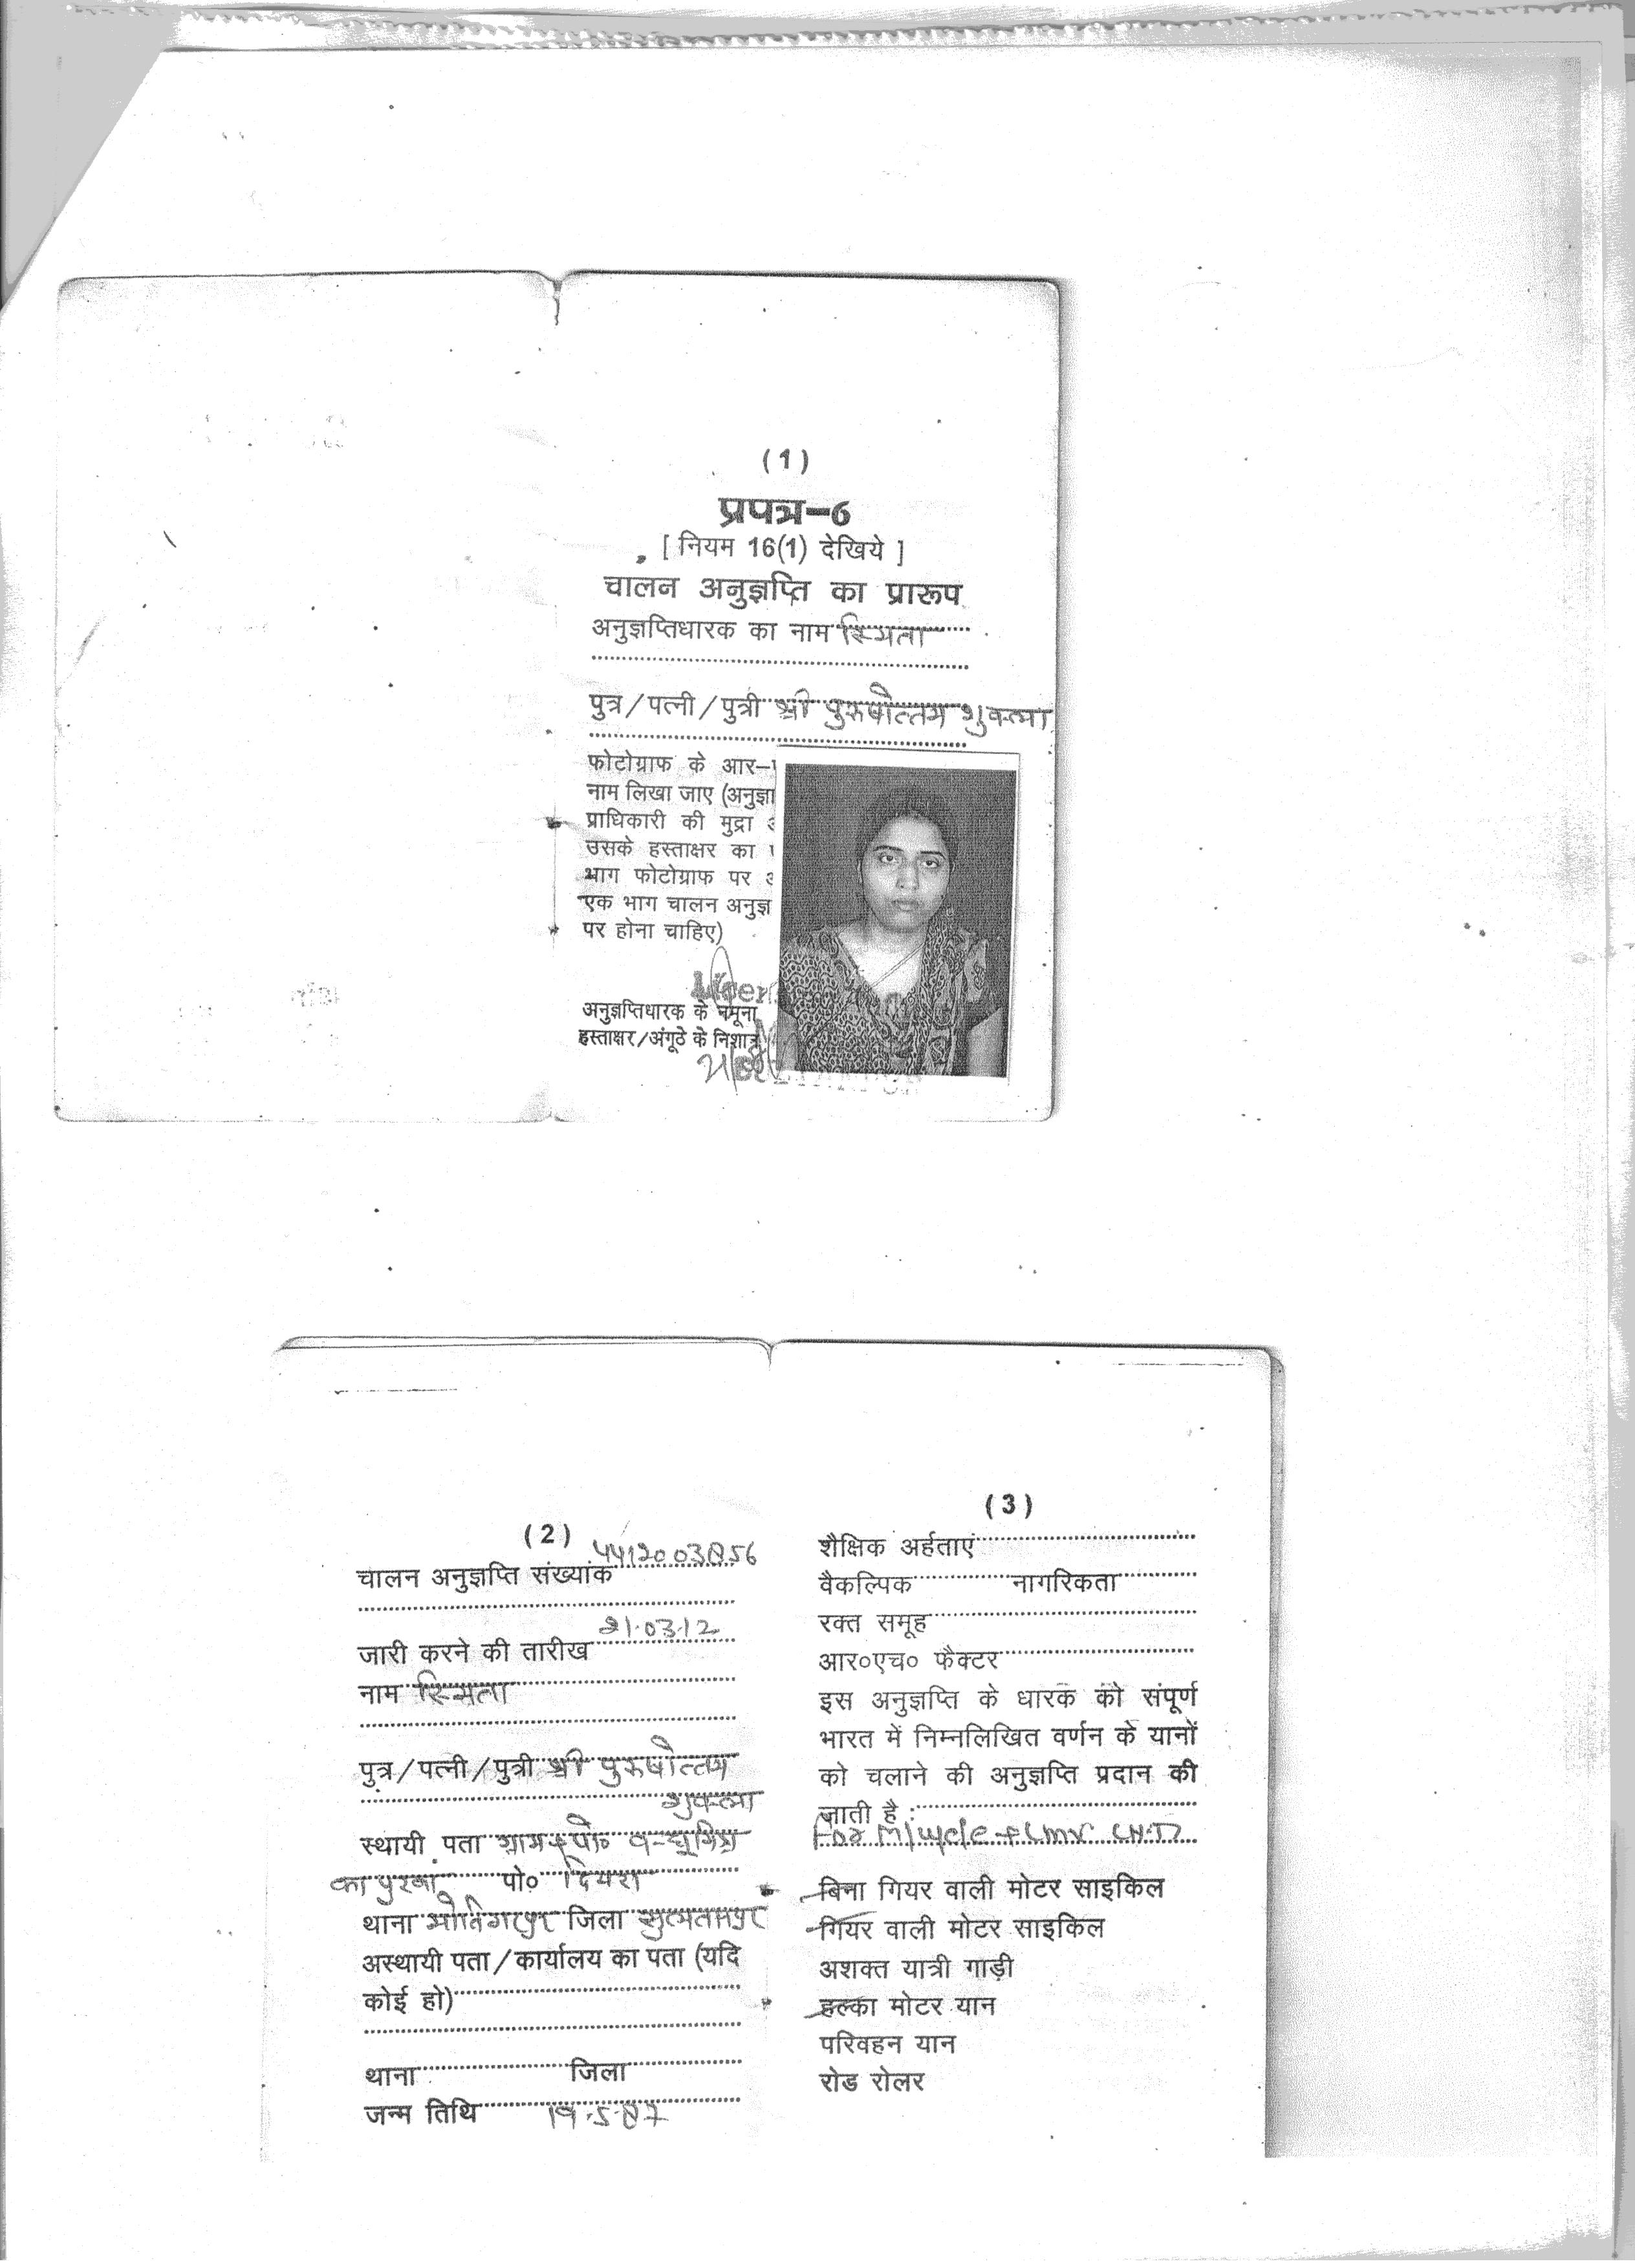 (1)
प्रपत्र-6
[ नियम 16(1) देखिये ]
चालन अनुज्ञप्ति का प्रारूप
अनुज्ञप्तिधारक का नाम स्मिता
पुत्र/पत्नी/पुत्री श्री पुरुषोत्तम शुक्ला
फोटोग्राफ के आर-
नाम लिखा जाए (अनुज्ञा
प्राधिकारी की मुद्रा
उसके हस्ताक्षर का
भाग फोटोग्राफ पर
एक भाग चालन अनुज्ञ
पर होना चाहिए)
अनुज्ञप्तिधारक के नमूना
हस्ताक्षर/अंगूठे के निशान
(2)
चालन अनुज्ञप्ति संख्यांक
जारी करने की तारीख 21.03.12
नाम स्मिता
पुत्र/पत्नी/पुत्री श्री पुरुषोत्तम
शुक्ला
स्थायी पता ग्राम
का पुरवा पो० दियरा
थाना मोतिगरपुर जिला सुल्तानपुर
अस्थायी पता/कार्यालय का पता (यदि
कोई हो)
थाना जिला
जन्म तिथि
(3)
शैक्षिक अर्हताएं
वैकल्पिक नागरिकता
रक्त समूह
आर०एच० फैक्टर
इस अनुज्ञप्ति के धारक को संपूर्ण
भारत में निम्नलिखित वर्णन के यानों
को चलाने की अनुज्ञप्ति प्रदान की
जाती है :
For M/cycle + LMV
बिना गियर वाली मोटर साइकिल
गियर वाली मोटर साइकिल
अशक्त यात्री गाड़ी
हल्का मोटर यान
परिवहन यान
रोड रोलर